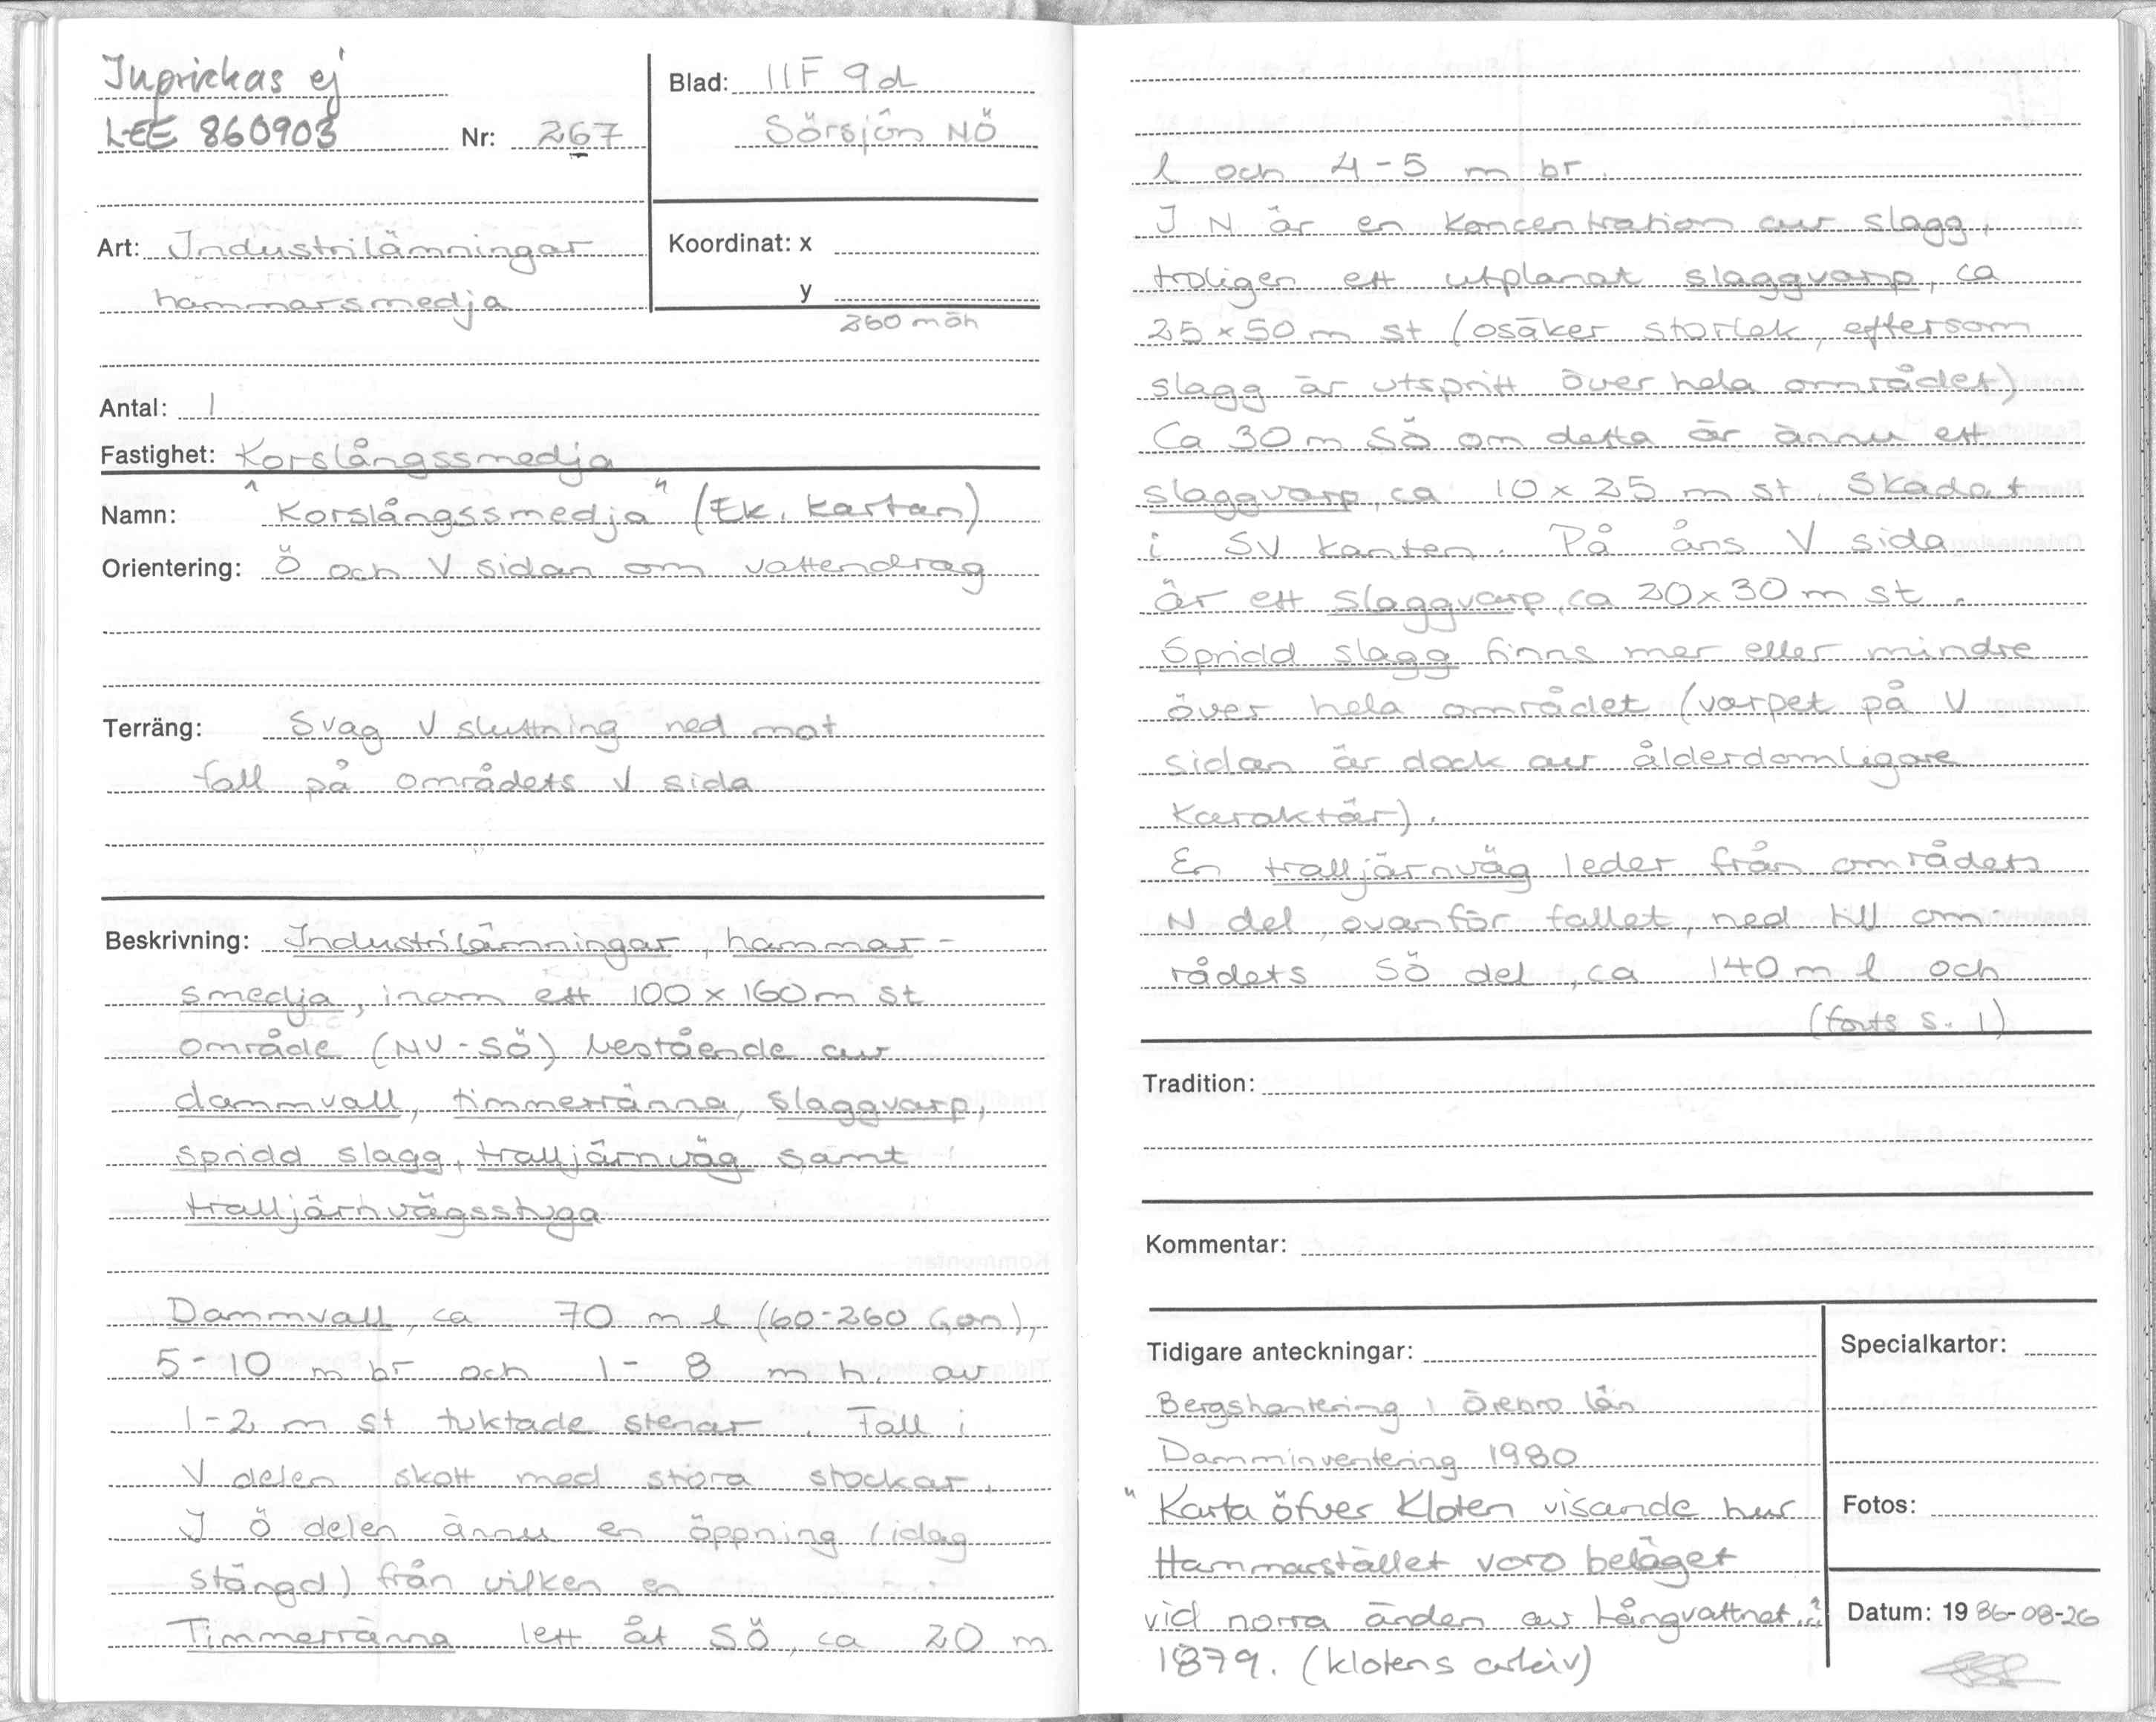 Inprickas ej
LEE 860903
Nr: 267
Blad: 11F 9d
Sörsjön NÖ
Art: Industrilämningar
hammarsmedja
Koordinat: x
y
260 möh
Antal: 1
Fastighet: Korslångssmedja
Namn: "Korslångssmedja" (Ek. kartan)
Orientering: Ö och V sidan om vattendrag
Terräng: Svag V sluttning ned mot
fall på områdets V sida
Beskrivning: Industrilämningar, hammar-
smedja, inom ett 100 x 160 m st
område (NV-SÖ) bestående av
dammvall, timmerränna, slaggvarp,
spridd slagg, tralljärnväg samt
tralljärnvägsstuga
Dammvall, ca 70 m l (60-260 Gon),
5-10 m br och 1-8 m h. av
1-2 m st tuktade stenar. Fall i
V delen skott med stora stockar.
I Ö delen ännu en öppning (idag
stängd) från vilken en
Timmerränna lett åt SÖ, ca 20 m
l och 4-5 m br.
I N är en koncentration av slagg,
troligen ett utplanat slaggvarp, ca
25 x 50 m st (osäker storlek, eftersom
slagg är utspritt över hela området)
Ca 30 m SÖ om detta är ännu ett
slaggvarp, ca 10 x 25 m st. Skadat
i SV kanten. På åns V sida
är ett slaggvarp, ca 20 x 30 m st.
Spridd slagg finns mer eller mindre
över hela området (varpet på V
sidan är dock av ålderdomligare
karaktär).
En tralljärnväg leder från områdets
N del, ovanför fallet, ned till om-
rådets SÖ del, ca 140 m l och
(forts s. 1)
Tradition:
Kommentar:
Tidigare anteckningar:
Bergshantering i Örebro län
Damminventering 1980
"Karta öfver Kloten visande hur
Hammarstället voro beläget
vid norra änden av Långvattnet."
1879. (Klotens arkiv)
Specialkartor:
Fotos:
Datum: 1986-08-26